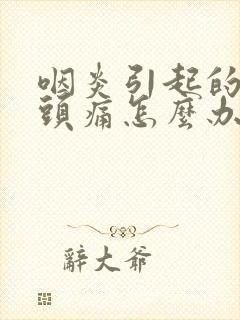 咽炎引起的
頭痛怎麼办
辭大爺